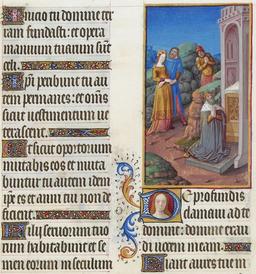 Inicio tu domine ter
ram fundasti: et opera
manuum tuarum sunt
celi.
Ipsi peribunt tu au
tem permanes: et omēs
sicut vestimentum ve
terascent.
Et sicut opertorium
mutabis eos et muta
buntur tu autem idem
ipse es et anni tui non de
ficient.
Filii servorum tuo
rum habitabunt et se
men eorum in seculum
De profundis
clamavi ad te
domine: domine exau
di vocem meam.
Fiant aures tue in